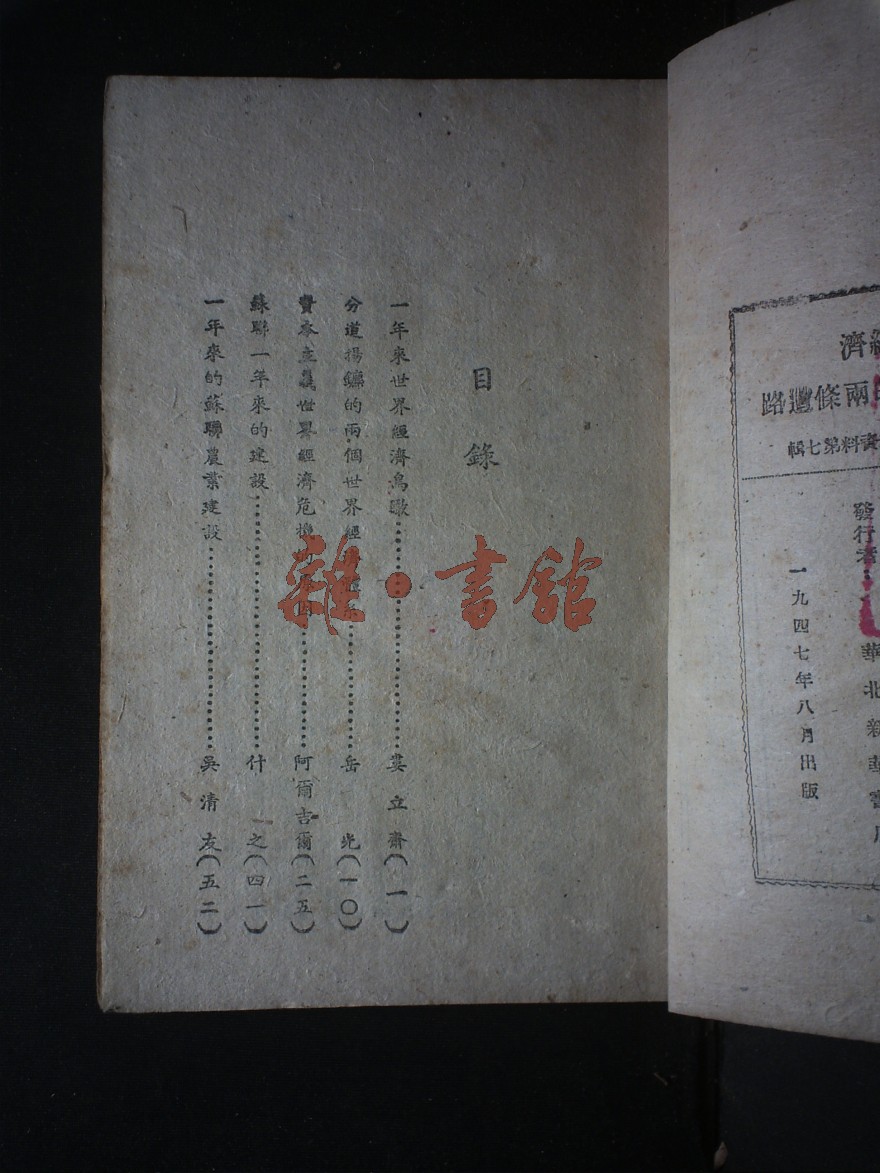 濟
兩條道路
資料第七輯
發行者
華北新華書
一九四七年八月出版
目錄
一年來世界經濟鳥瞰……婁立齋(一)
分道揚鑣的兩個世界經……岳光(一〇)
資本主義世界經濟危機……阿爾吉爾(二五)
蘇聯一年來的建設……什之(四一)
一年來的蘇聯農業建設……吳清友(五二)
雜·書館